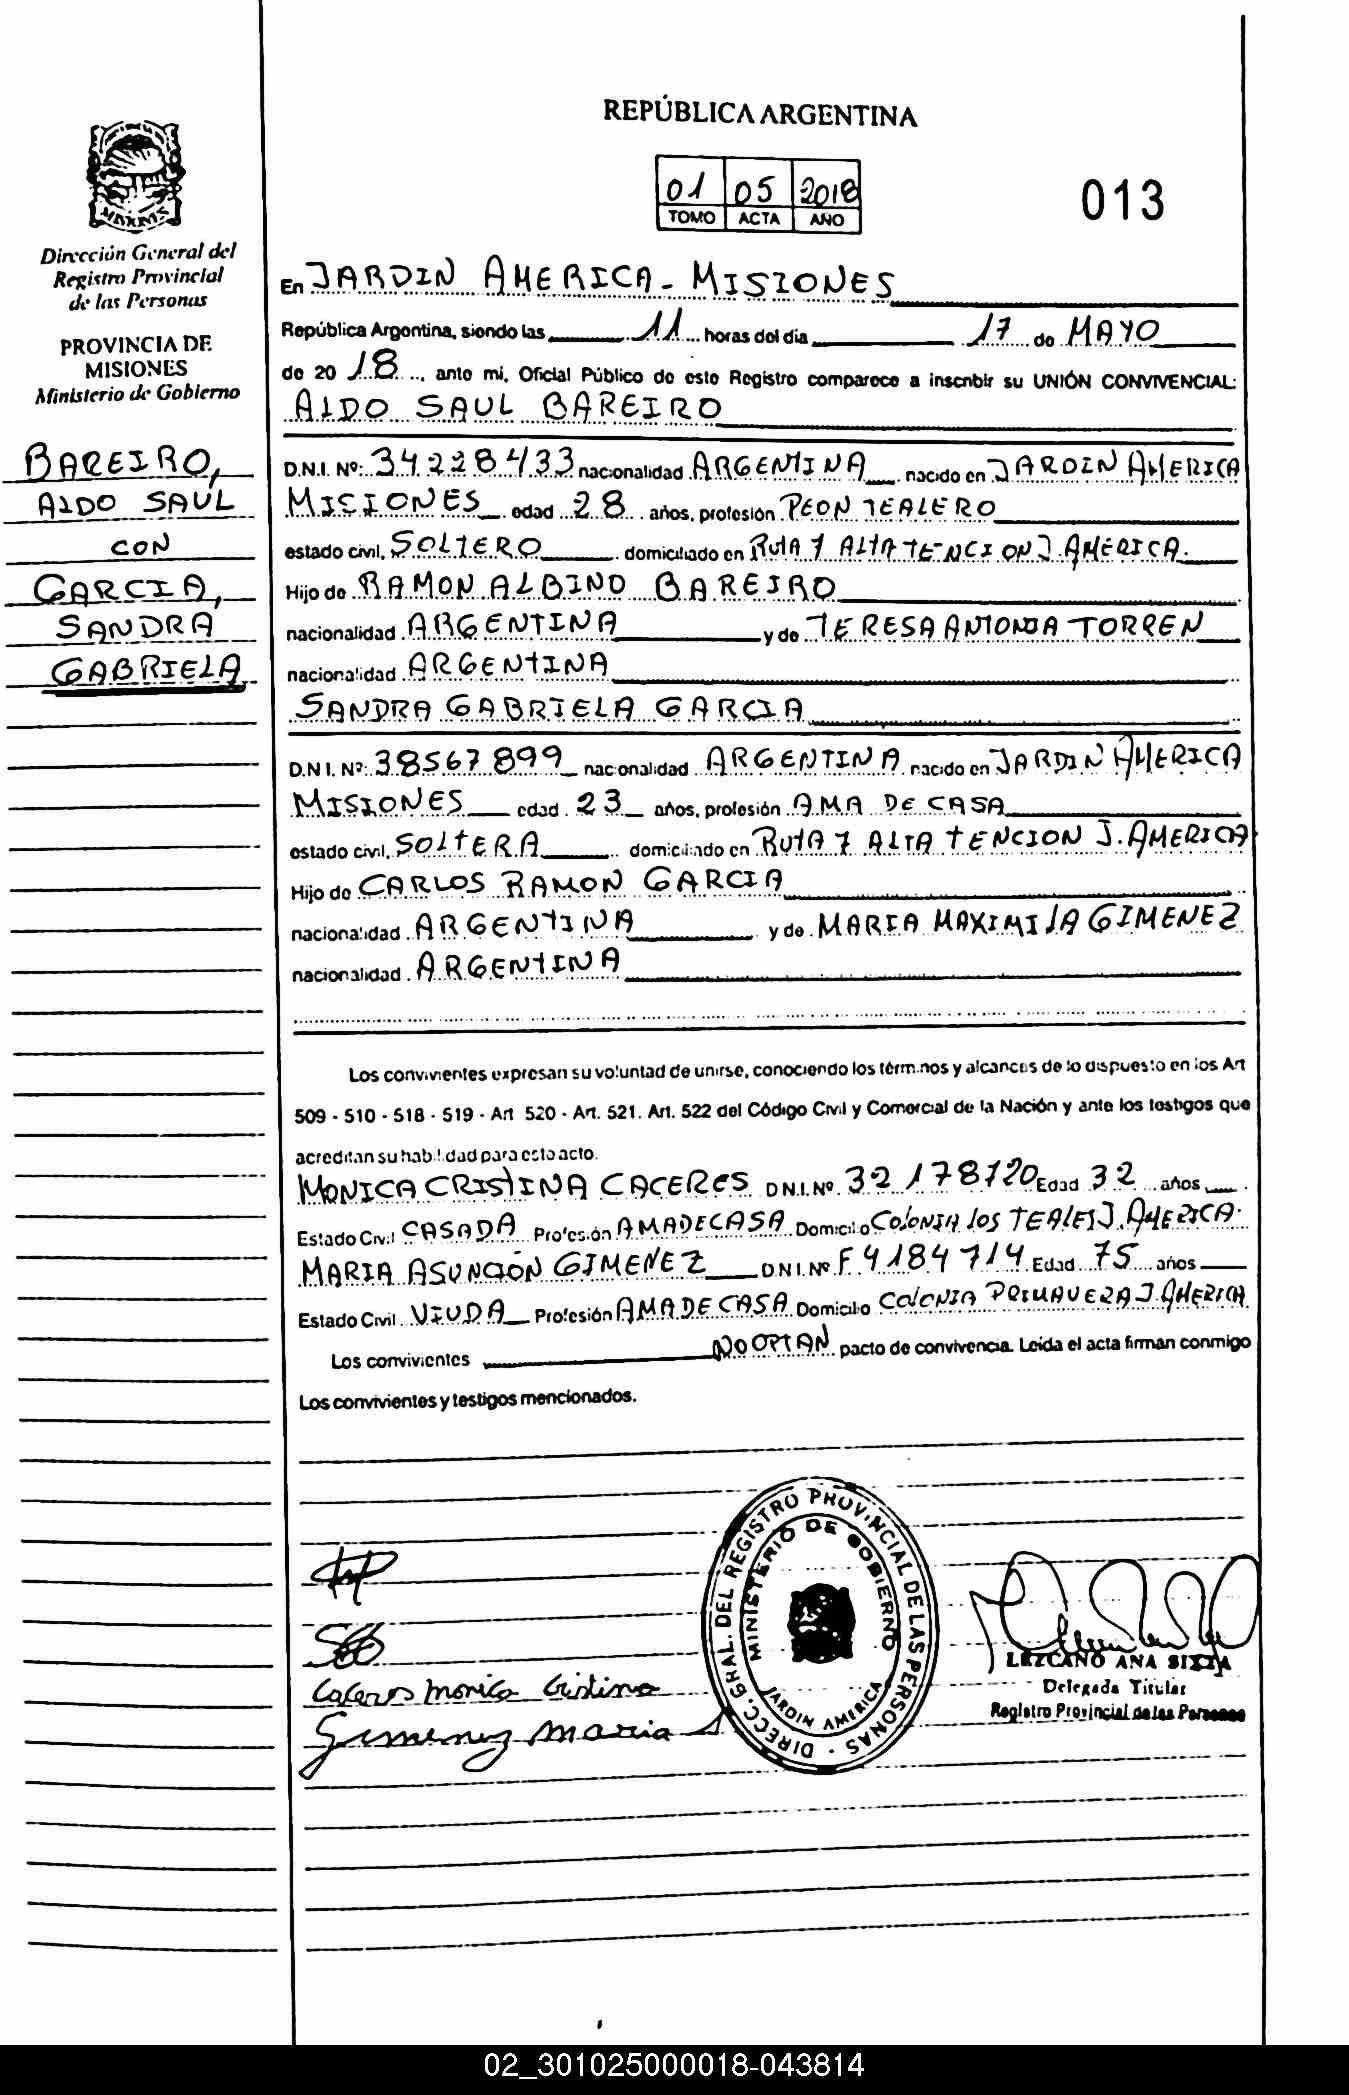 REPÚBLICA ARGENTINA
01 05 2018
TOMO ACTA AÑO
013
MISIONES
Dirección General del
Registro Provincial
de las Personas
PROVINCIA DE
MISIONES
Ministerio de Gobierno
BAREIRO,
ALDO SAUL
CON
GARCIA,
SANDRA
GABRIELA
En JARDIN AMERICA - MISIONES
República Argentina, siendo las 11 horas del día 17 de MAYO
de 20 18 .., ante mi, Oficial Público de este Registro comparece a inscribir su UNIÓN CONVIVENCIAL:
ALDO SAUL BAREIRO
D.N.I. Nº: 34228433 nacionalidad ARGENTINA nacido en JARDIN AMERICA
MISIONES edad 28 años, profesión PEON TEALERO
estado civil, SOLTERO domiciliado en RUTA 7 ALTA TENCION J. AMERICA.
Hijo de RAMON ALBINO BAREIRO
nacionalidad ARGENTINA y de TERESA ANTONIA TORREN
nacionalidad ARGENTINA
SANDRA GABRIELA GARCIA
D.N.I. Nº: 38567899 nacionalidad ARGENTINA nacido en JARDIN AMERICA
MISIONES edad 23 años, profesión AMA DE CASA
estado civil, SOLTERA domiciliado en RUTA 7 ALTA TENCION J. AMERICA
Hijo de CARLOS RAMON GARCIA
nacionalidad ARGENTINA y de MARIA MAXIMILA GIMENEZ
nacionalidad ARGENTINA
Los convivientes expresan su voluntad de unirse, conociendo los términos y alcances de lo dispuesto en los Art
509 - 510 - 518 - 519 - Art 520 - Art. 521. Art. 522 del Código Civil y Comercial de la Nación y ante los testigos que
acreditan su habilidad para este acto.
MONICA CRISTINA CACERES D.N.I. Nº 32178120 Edad 32 años
Estado Civil CASADA Profesión AMA DE CASA Domicilio COLONIA LOS TEALES J. AMERICA.
MARIA ASUNCION GIMENEZ D.N.I. Nº F 4184714 Edad 75 años
Estado Civil VIUDA Profesión AMA DE CASA Domicilio COLONIA PRIMAVERA J. AMERICA
Los convivientes NO OPTAN pacto de convivencia. Leída el acta firman conmigo
Los convivientes y testigos mencionados.
DIRECC. GRAL. DEL REGISTRO PROVINCIAL DE LAS PERSONAS
MINISTERIO DE GOBIERNO
JARDIN AMERICA
Caceres Monica Cristina
Gimenez Maria A
LEZCANO ANA SIXTA
Delegada Titular
Registro Provincial de las Personas
02_301025000018-043814